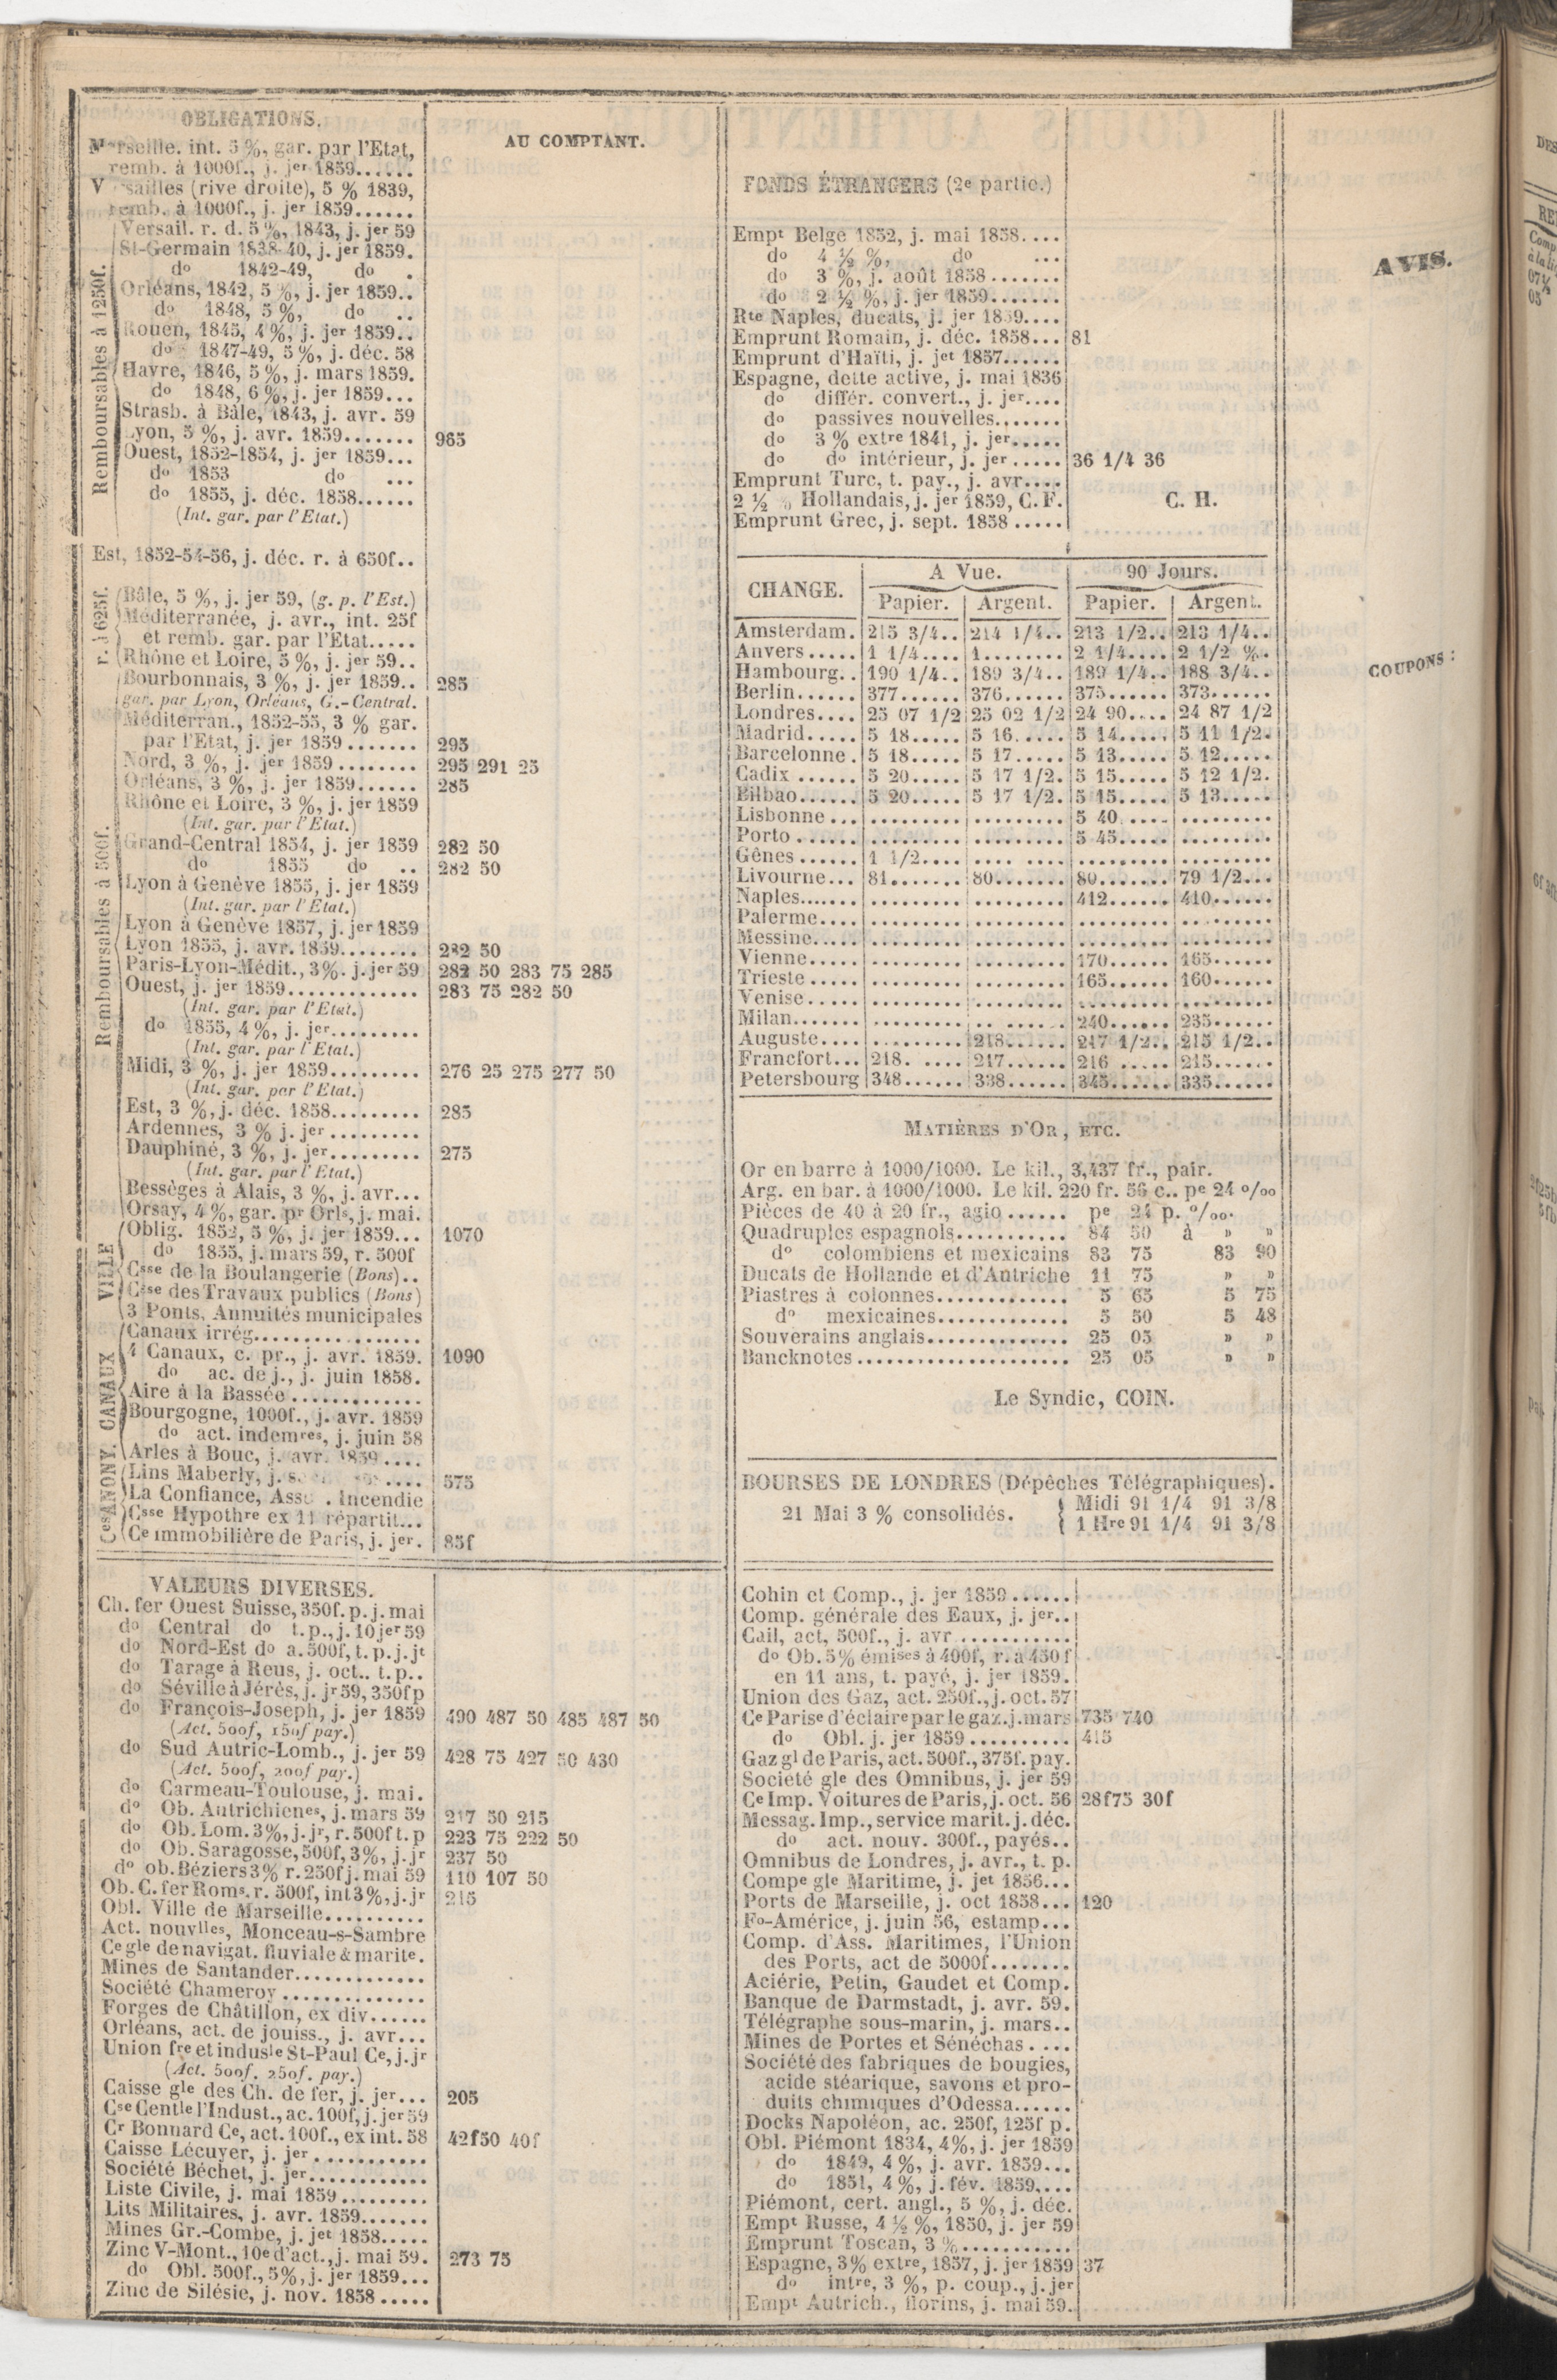 OBLIGATIONS.
AU COMPTANT.
Marseille. int. 5 %, gar. par l'Etat,
remb. à 1000f., j. jer 1859......
Versailles (rive droite), 5 % 1839,
remb. à 1000f., j. jer 1859......
Remboursables à 1250f.
Versail. r. d. 5 %, 1843, j. jer 59
St-Germain 1838-40, j. jer 1859.
do 1842-49, do .
Orléans, 1842, 5 %, j. jer 1859..
do 1848, 5 %, do ..
Rouen, 1845, 4 %, j. jer 1859..
do 1847-49, 5 %, j. déc. 58
Havre, 1846, 5 %, j. mars 1859.
do 1848, 6 %, j. jer 1859...
Strasb. à Bâle, 1843, j. avr. 59
Lyon, 5 %, j. avr. 1859....... 965
Ouest, 1852-1854, j. jer 1859...
do 1853 do ...
do 1855, j. déc. 1858......
(Int. gar. par l'Etat.)
Est, 1852-54-56, j. déc. r. à 650f..
r. à 625f.
Bâle, 5 %, j. jer 59, (g. p. l'Est.)
Méditerranée, j. avr., int. 25f
et remb. gar. par l'Etat.....
Rhône et Loire, 5 %, j. jer 59..
Remboursables à 500f.
Bourbonnais, 3 %, j. jer 1859.. 285
gar. par Lyon, Orléans, G.-Central.
Méditerran., 1852-55, 3 % gar.
par l'Etat, j. jer 1859....... 295
Nord, 3 %, j. jer 1859........ 295 291 25
Orléans, 3 %, j. jer 1859...... 285
Rhône et Loire, 3 %, j. jer 1859
(Int. gar. par l'Etat.)
Grand-Central 1854, j. jer 1859 282 50
do 1855 do .. 282 50
Lyon à Genève 1855, j. jer 1859
(Int. gar. par l'Etat.)
Lyon à Genève 1857, j. jer 1859
Lyon 1855, j. avr. 1859........ 282 50
Paris-Lyon-Médit., 3 %. j. jer 59 282 50 283 75 285
Ouest, j. jer 1859............. 283 75 282 50
(Int. gar. par l'Etat.)
do 1855, 4 %, j. jer.........
(Int. gar. par l'Etat.)
Midi, 3 %, j. jer 1859......... 276 25 275 277 50
(Int. gar. par l'Etat.)
Est, 3 %, j. déc. 1858......... 285
Ardennes, 3 % j. jer .........
Dauphiné, 3 %, j. jer......... 275
(Int. gar. par l'Etat.)
Bessèges à Alais, 3 %, j. avr...
Orsay, 4 %, gar. pr Orls, j. mai.
VILLE
Oblig. 1852, 5 %, j. jer 1859... 1070
do 1855, j. mars 59, r. 500f
Csse de la Boulangerie (Bons)..
Csse des Travaux publics (Bons)
3 Ponts, Annuités municipales
CANAUX
Canaux irrég................
4 Canaux, c. pr., j. avr. 1859. 1090
do ac. de j., j. juin 1858.
Aire à la Bassée.............
Bourgogne, 1000f., j. avr. 1859
do act. indemres, j. juin 58
Arles à Bouc, j. avr. 1859....
Ces ANONY.
Lins Maberly, j. .... 575
La Confiance, Ass . Incendie
Csse Hypothre ex 11 répartit...
Ce immobilière de Paris, j. jer. 85f
VALEURS DIVERSES.
Ch. fer Ouest Suisse, 350f. p. j. mai
do Central do t. p., j. 10 jer 59
do Nord-Est do a. 500f, t. p. j. jt
do Tarage à Reus, j. oct.. t. p..
do Séville à Jérès, j. jr 59, 350f p
do François-Joseph, j. jer 1859 490 487 50 485 487 50
(Act. 500f, 150f pay.)
do Sud Autric-Lomb., j. jer 59 428 75 427 50 430
(Act. 500f, 200f pay.)
do Carmeau-Toulouse, j. mai.
do Ob. Autrichienes, j. mars 59 217 50 215
do Ob. Lom. 3 %, j. jr, r. 500f t. p 223 75 222 50
do Ob. Saragosse, 500f, 3 %, j. jr 237 50
do ob. Béziers 3 % r. 250f j. mai 59 110 107 50
Ob. C. fer Roms. r. 500f, int 3 %, j. jr 215
Obl. Ville de Marseille..........
Act. nouvlles, Monceau-s-Sambre
Ce gle de navigat. fluviale & marite.
Mines de Santander.............
Société Chameroy..............
Forges de Châtillon, ex div......
Orléans, act. de jouiss., j. avr...
Union fre et indusle St-Paul Ce, j. jr
(Act. 500f. 250f. pay.)
Caisse gle des Ch. de fer, j. jer... 205
Cse Centle l'Indust., ac. 100f, j. jer 59
Cr Bonnard Ce, act. 100f., ex int. 58 42f50 40f
Caisse Lécuyer, j. jer ...........
Société Béchet, j. jer............
Liste Civile, j. mai 1859.........
Lits Militaires, j. avr. 1859.......
Mines Gr.-Combe, j. jet 1858.....
Zinc V-Mont., 10e d'act., j. mai 59. 273 75
do Obl. 500f., 5 %, j. jer 1859...
Zinc de Silésie, j. nov. 1858.....
FONDS ÉTRANGERS (2e partie.)
Empt Belge 1852, j. mai 1858....
do 4 ½ %, do ...
do 3 %, j. août 1858.......
do 2 ½ %, j. jer 1859.......
Rte Naples, ducats, j. jer 1859....
Emprunt Romain, j. déc. 1858... 81
Emprunt d'Haïti, j. jet 1857......
Espagne, dette active, j. mai 1836
do différ. convert., j. jer....
do passives nouvelles.......
do 3 % extre 1841, j. jer.....
do do intérieur, j. jer ..... 36 1/4 36
Emprunt Turc, t. pay., j. avr....
2 ½ % Hollandais, j. jer 1859, C. F. C. H.
Emprunt Grec, j. sept. 1858.....
CHANGE. A Vue. 90 Jours.
Papier. Argent. Papier. Argent.
Amsterdam. 215 3/4.. 214 1/4.. 213 1/2.. 213 1/4..
Anvers..... 1 1/4.... 1........ 2 1/4.... 2 1/2 %.
Hambourg.. 190 1/4.. 189 3/4.. 189 1/4.. 188 3/4..
Berlin...... 377...... 376...... 375...... 373......
Londres.... 25 07 1/2 25 02 1/2 24 90.... 24 87 1/2
Madrid..... 5 18..... 5 16..... 5 14..... 5 11 1/2.
Barcelonne. 5 18..... 5 17..... 5 13..... 5 12.....
Cadix ...... 5 20..... 5 17 1/2. 5 15..... 5 12 1/2.
Bilbao...... 5 20..... 5 17 1/2. 5 15..... 5 13.....
Lisbonne... ......... ......... 5 40..... .........
Porto...... ......... ......... 5 45..... .........
Gênes...... 1 1/2.... ......... ......... .........
Livourne... 81....... 80....... 80....... 79 1/2...
Naples...... ......... ......... 412...... 410......
Palerme.... ......... ......... ......... .........
Messine..... ......... ......... ......... .........
Vienne..... ......... ......... 170...... 165......
Trieste..... ......... ......... 165...... 160......
Venise..... ......... ......... ......... .........
Milan....... ......... ......... 240...... 235......
Auguste.... ......... 218...... 217 1/2.. 215 1/2..
Francfort... 218...... 217...... 216 ..... 215......
Petersbourg 348...... 338...... 345...... 335......
MATIÈRES D'OR, ETC.
Or en barre à 1000/1000. Le kil., 3,437 fr., pair.
Arg. en bar. à 1000/1000. Le kil. 220 fr. 56 c.. pe 24 o/oo
Pièces de 40 à 20 fr., agio...... pe 24 p. o/oo.
Quadruples espagnols........... 84 50 à » »
do colombiens et mexicains 83 75 83 90
Ducats de Hollande et d'Autriche 11 75 » »
Piastres à colonnes............. 5 65 5 75
do mexicaines............. 5 50 5 48
Souverains anglais.............. 25 05 » »
Bancknotes..................... 25 05 » »
Le Syndic, COIN.
BOURSES DE LONDRES (Dépêches Télégraphiques).
21 Mai 3 % consolidés. Midi 91 1/4 91 3/8
1 Hre 91 1/4 91 3/8
Cohin et Comp., j. jer 1859......
Comp. générale des Eaux, j. jer..
Cail, act, 500f., j. avr...........
do Ob. 5 % émises à 400f, r. à 450f
en 11 ans, t. payé, j. jer 1859.
Union des Gaz, act. 250f., j. oct. 57
Ce Parise d'éclaire par le gaz. j. mars 735 740
do Obl. j. jer 1859.......... 415
Gaz gl de Paris, act. 500f., 375f. pay.
Société gle des Omnibus, j. jer 59
Ce Imp. Voitures de Paris, j. oct. 56 28f75 30f
Messag. Imp., service marit. j. déc.
do act. nouv. 300f., payés..
Omnibus de Londres, j. avr., t. p.
Compe gle Maritime, j. jet 1856...
Ports de Marseille, j. oct 1858... 120
Fo-Américe, j. juin 56, estamp...
Comp. d'Ass. Maritimes, l'Union
des Ports, act de 5000f........
Aciérie, Petin, Gaudet et Comp.
Banque de Darmstadt, j. avr. 59.
Télégraphe sous-marin, j. mars..
Mines de Portes et Sénéchas....
Société des fabriques de bougies,
acide stéarique, savons et pro-
duits chimiques d'Odessa......
Docks Napoléon, ac. 250f, 125f p.
Obl. Piémont 1834, 4%, j. jer 1859
do 1849, 4%, j. avr. 1859...
do 1851, 4%, j. fév. 1859....
Piémont, cert. angl., 5 %, j. déc.
Empt Russe, 4 ½ %, 1850, j. jer 59
Emprunt Toscan, 3 %...........
Espagne, 3% extre, 1857, j. jer 1859 37
do intre, 3 %, p. coup., j. jer
Empt Autrich., florins, j. mai 59.
AVIS.
COUPONS :